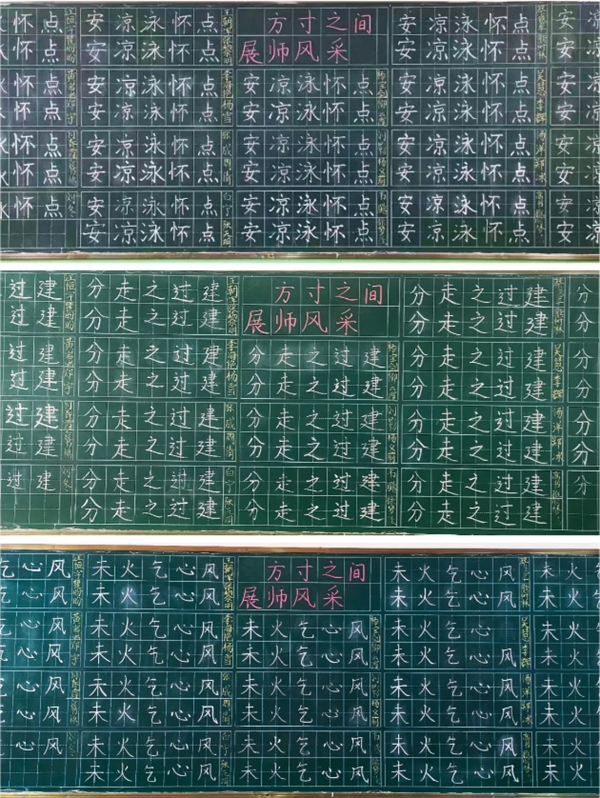 怀点 安凉泳怀点 方寸之间 安凉泳怀点 安
怀点 安凉泳怀点 展师风采 安凉泳怀点 安
怀点 安凉泳怀点 安凉泳怀点 安凉泳怀点 安
怀点 安凉泳怀点 安凉泳怀点 安凉泳怀点 安
怀点 安凉泳怀点 安凉泳怀点 安凉泳怀点 安
怀点 安凉泳怀点 安凉泳怀点 安凉泳怀点 安
怀点 安凉泳怀点 安凉泳怀点 安凉泳怀点 安
安凉泳怀点 安凉泳怀点 安凉泳怀点
过建 分走之过建 方寸之间 分走之过建 分
过建 分走之过建 展师风采 分走之过建 分
过建 分走之过建 分走之过建 分走之过建 分
过建 分走之过建 分走之过建 分走之过建 分
过建 分走之过建 分走之过建 分走之过建 分
过建 分走之过建 分走之过建 分走之过建 分
过建 分走之过建 分走之过建 分走之过建 分
分走之过建 分走之过建 分走之过建
心风 未火乞心风 方寸之间 未火乞心风 未火
心风 未火乞心风 展师风采 未火乞心风 未火
心风 未火乞心风 未火乞心风 未火乞心风 未火
心风 未火乞心风 未火乞心风 未火乞心风 未火
心风 未火乞心风 未火乞心风 未火乞心风 未火
心风 未火乞心风 未火乞心风 未火乞心风 未火
心风 未火乞心风 未火乞心风 未火乞心风 未火
未火乞心风 未火乞心风 未火乞心风